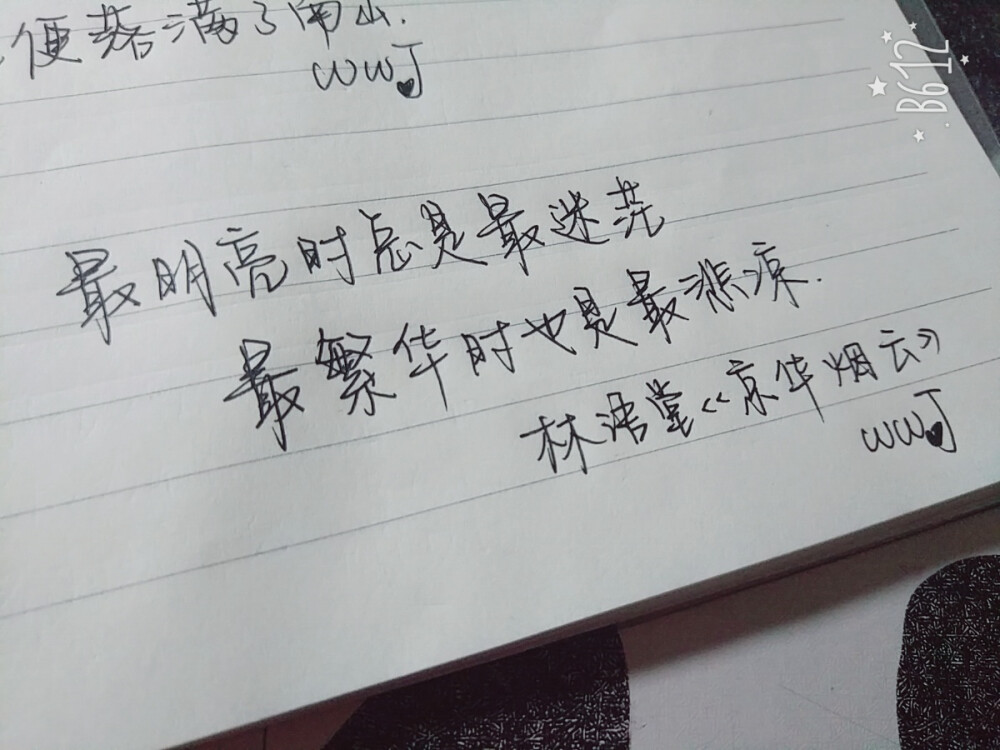 便落满了南山.
WWJ
B612
最明亮时总是最迷茫
最繁华时也是最悲凉.
林语堂《京华烟云》
WWJ